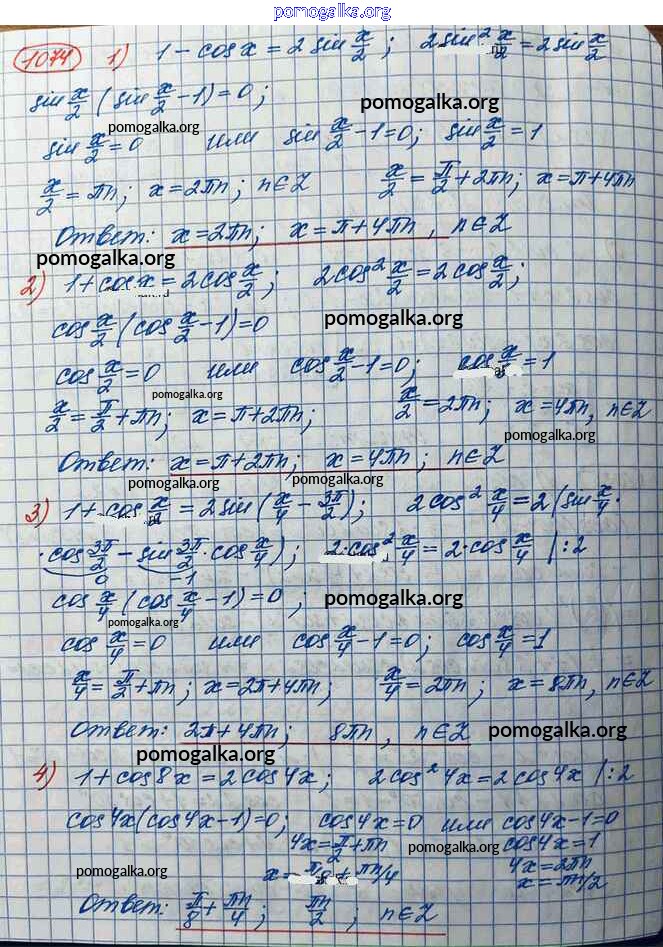 pomogalka.org
1074 1) 1 - cos x = 2 sin x/2 ; 2 sin² x/2 = 2 sin x/2
sin x/2 (sin x/2 - 1) = 0 ;
pomogalka.org
pomogalka.org
sin x/2 = 0 или sin x/2 - 1 = 0 ; sin x/2 = 1
x/2 = πn ; x = 2πn ; n∈Z x/2 = π/2 + 2πn ; x = π + 4πn
Ответ: x = 2πn ; x = π + 4πn , n∈Z
pomogalka.org
2) 1 + cos x = 2 cos x/2 ; 2 cos² x/2 = 2 cos x/2 ;
cos x/2 (cos x/2 - 1) = 0
pomogalka.org
cos x/2 = 0 или cos x/2 - 1 = 0 ; cos x/2 = 1
pomogalka.org
x/2 = π/2 + πn ; x = π + 2πn ; x/2 = 2πn ; x = 4πn , n∈Z
pomogalka.org
Ответ: x = π + 2πn ; x = 4πn ; n∈Z
pomogalka.org
pomogalka.org
3) 1 + cos x/2 = 2 sin (x/4 - 3π/2) ; 2 cos² x/4 = 2 (sin x/4 ·
· cos 3π/2 - sin 3π/2 · cos x/4) ; 2 · cos² x/4 = 2 · cos x/4 | : 2
0 -1
cos x/4 (cos x/4 - 1) = 0 ;
pomogalka.org
pomogalka.org
cos x/4 = 0 или cos x/4 - 1 = 0 ; cos x/4 = 1
x/4 = π/2 + πn ; x = 2π + 4πn ; x/4 = 2πn ; x = 8πn , n∈Z
Ответ: 2π + 4πn ; 8πn , n∈Z
pomogalka.org
pomogalka.org
4) 1 + cos 8x = 2 cos 4x ; 2 cos² 4x = 2 cos 4x | : 2
cos 4x (cos 4x - 1) = 0 ; cos 4x = 0 или cos 4x - 1 = 0
4x = π/2 + πn cos 4x = 1
pomogalka.org
pomogalka.org
x = π/8 + πn/4 4x = 2πn
x = πn/2
Ответ: π/8 + πn/4 ; πn/2 ; n∈Z